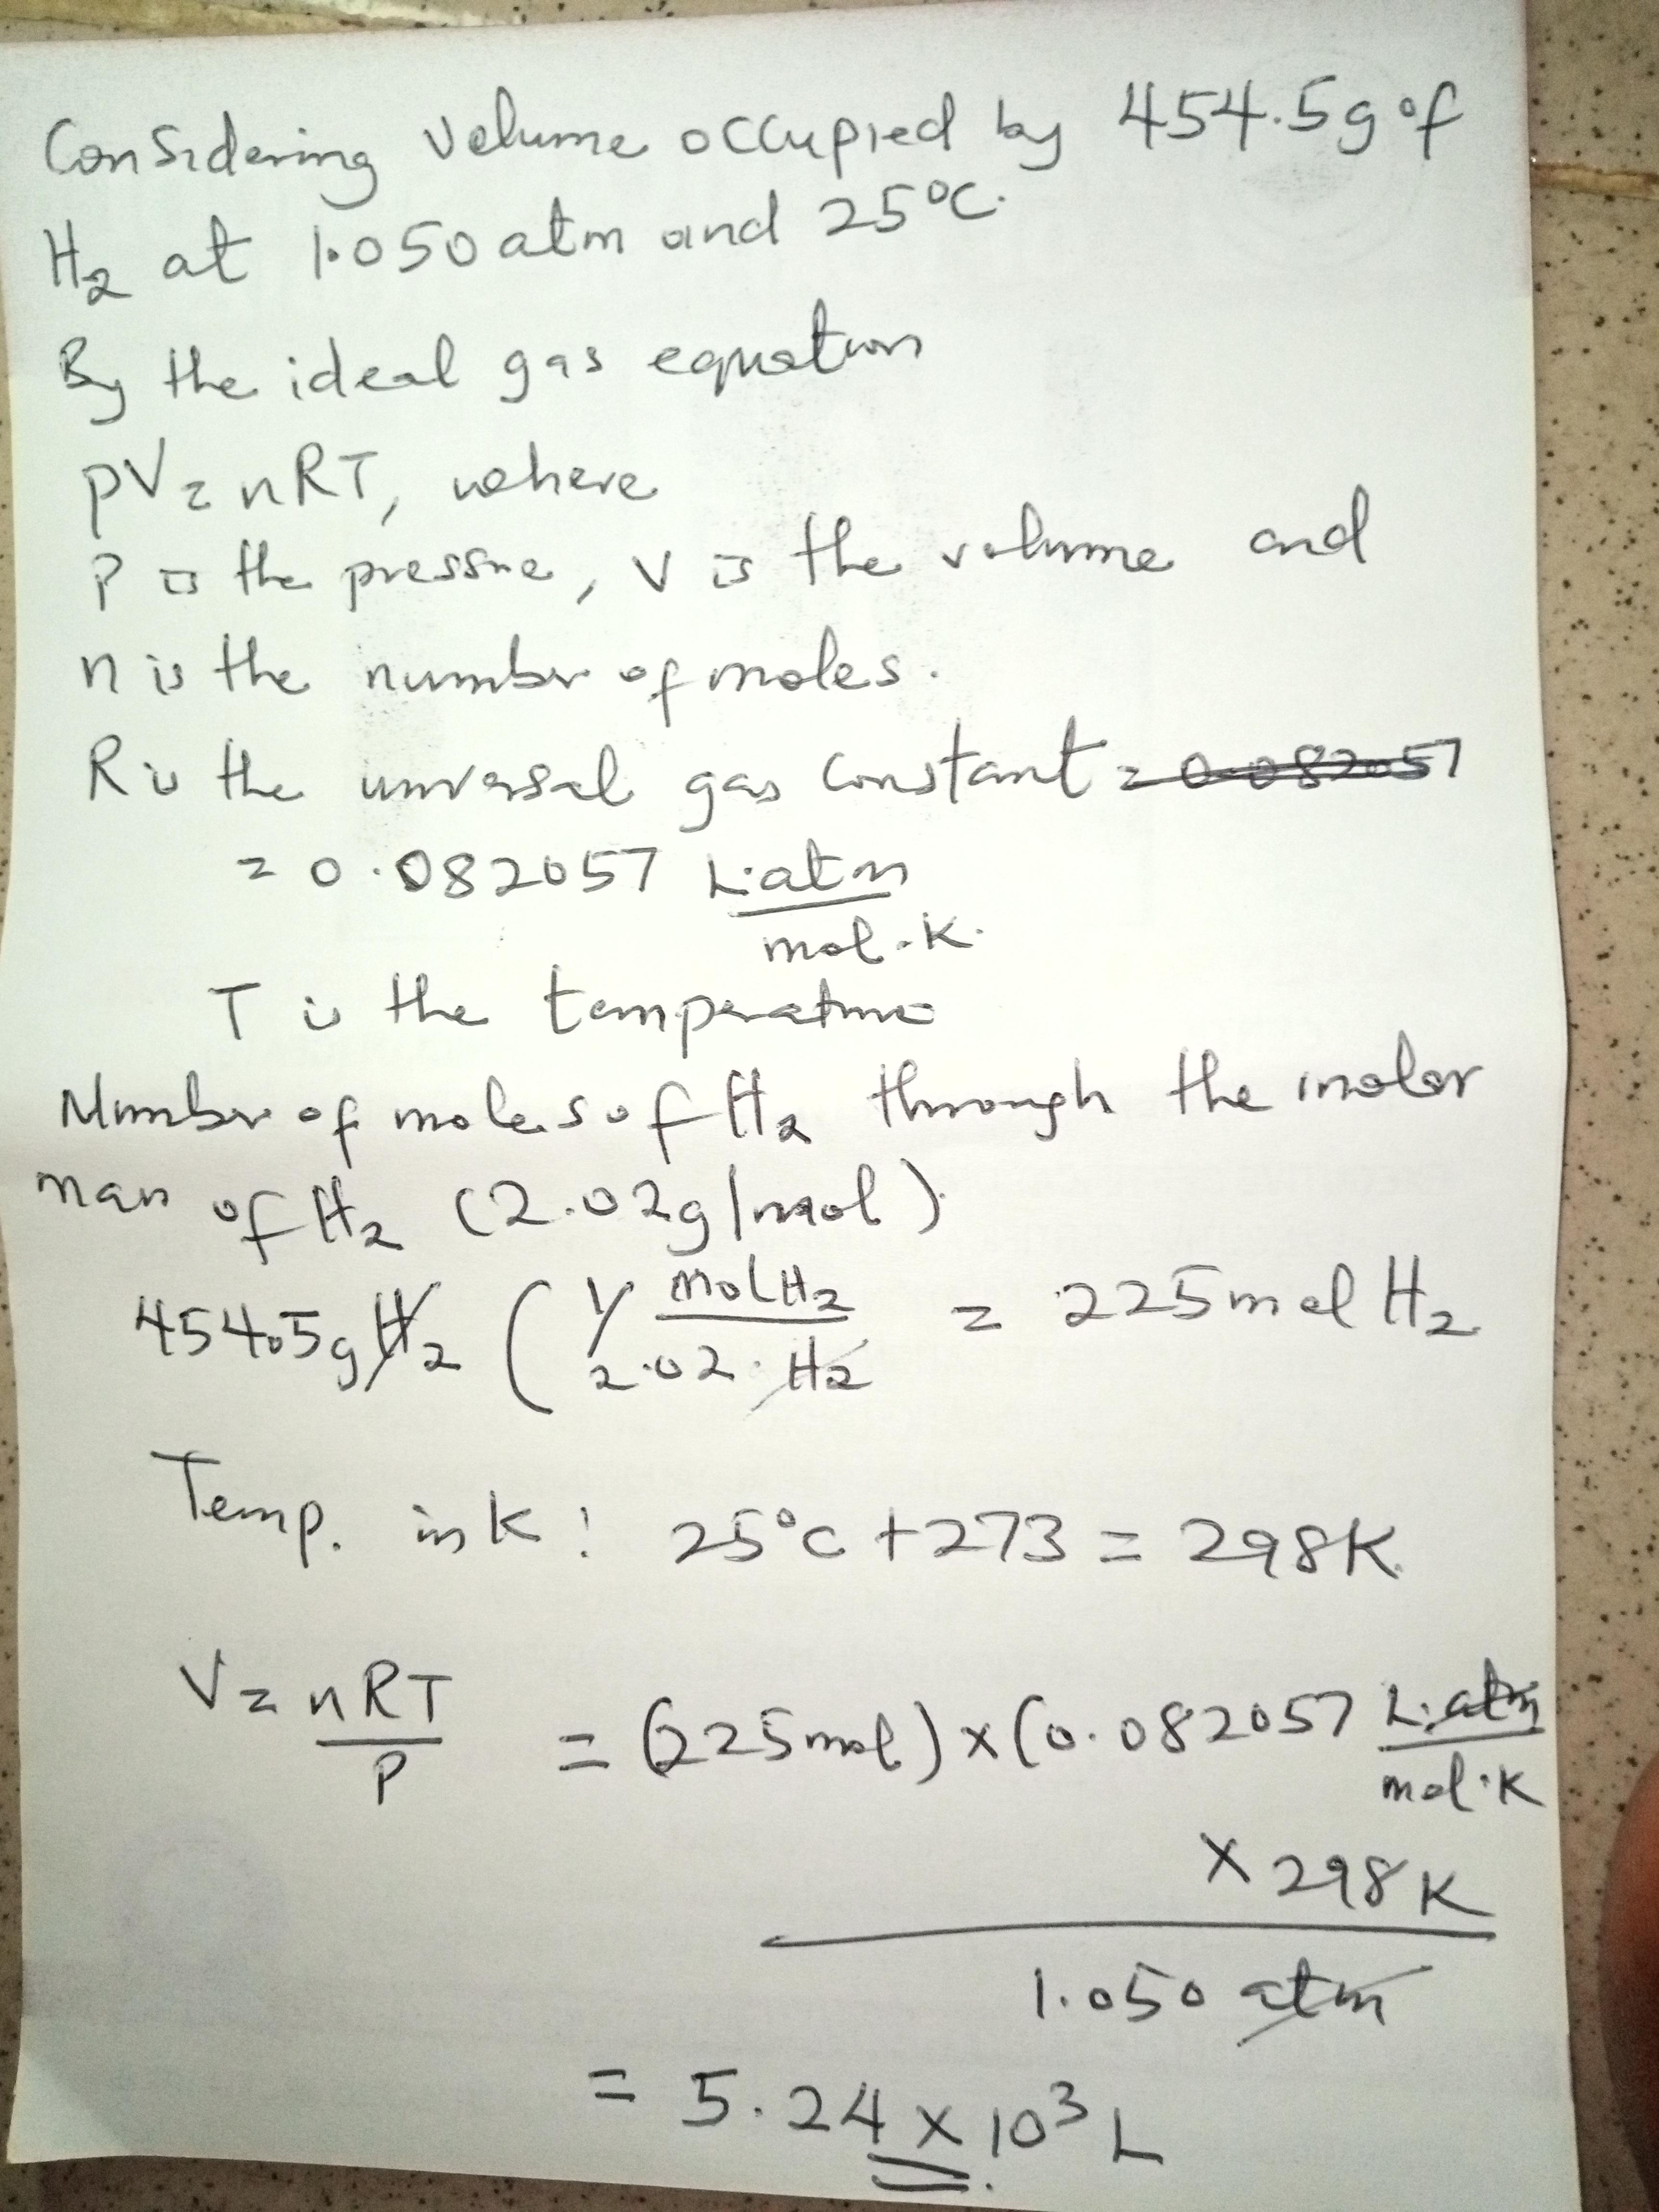 Considering Volume occupied by 454.5g of
H₂ at 1.050 atm and 25°C.
By the ideal gas equation
PV = nRT, where
P is the pressure, V is the volume and
n is the number of moles.
R is the universal gas constant = 0.082057
= 0.082057 L.atm
mol.K.
T is the temperature
Number of moles of H₂ through the molar
mass of H₂ (2.02g/mol)
454.5g H₂ ( 1 mol H₂ = 225 mol H₂
2.02. H₂
Temp. in K: 25°C + 273 = 298K.
V = nRT = (225 mol) x (0.082057 L.atm
P mol.K
x 298 K
1.050 atm
= 5.24 x 10³ L